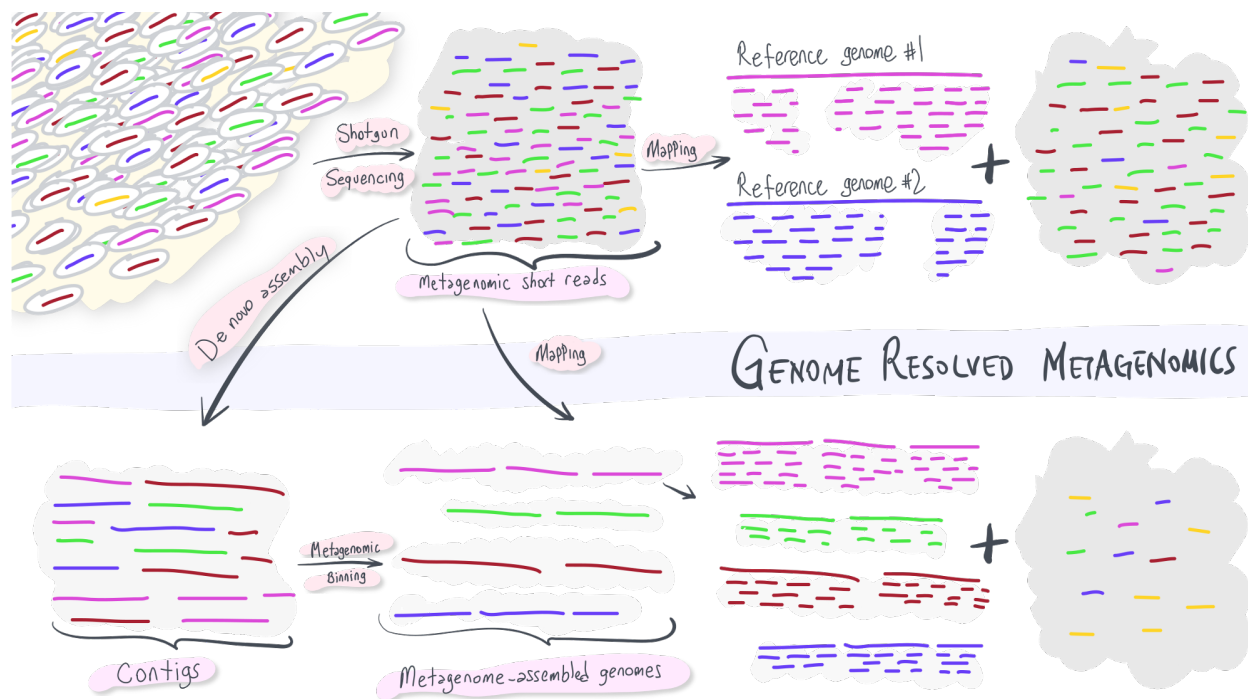 Shotgun
Sequencing
Metagenomic short reads
Mapping
Reference genome #1
Reference genome #2
De novo assembly
Mapping
GENOME RESOLVED METAGENOMICS
Contigs
Metagenomic
Binning
Metagenome-assembled genomes